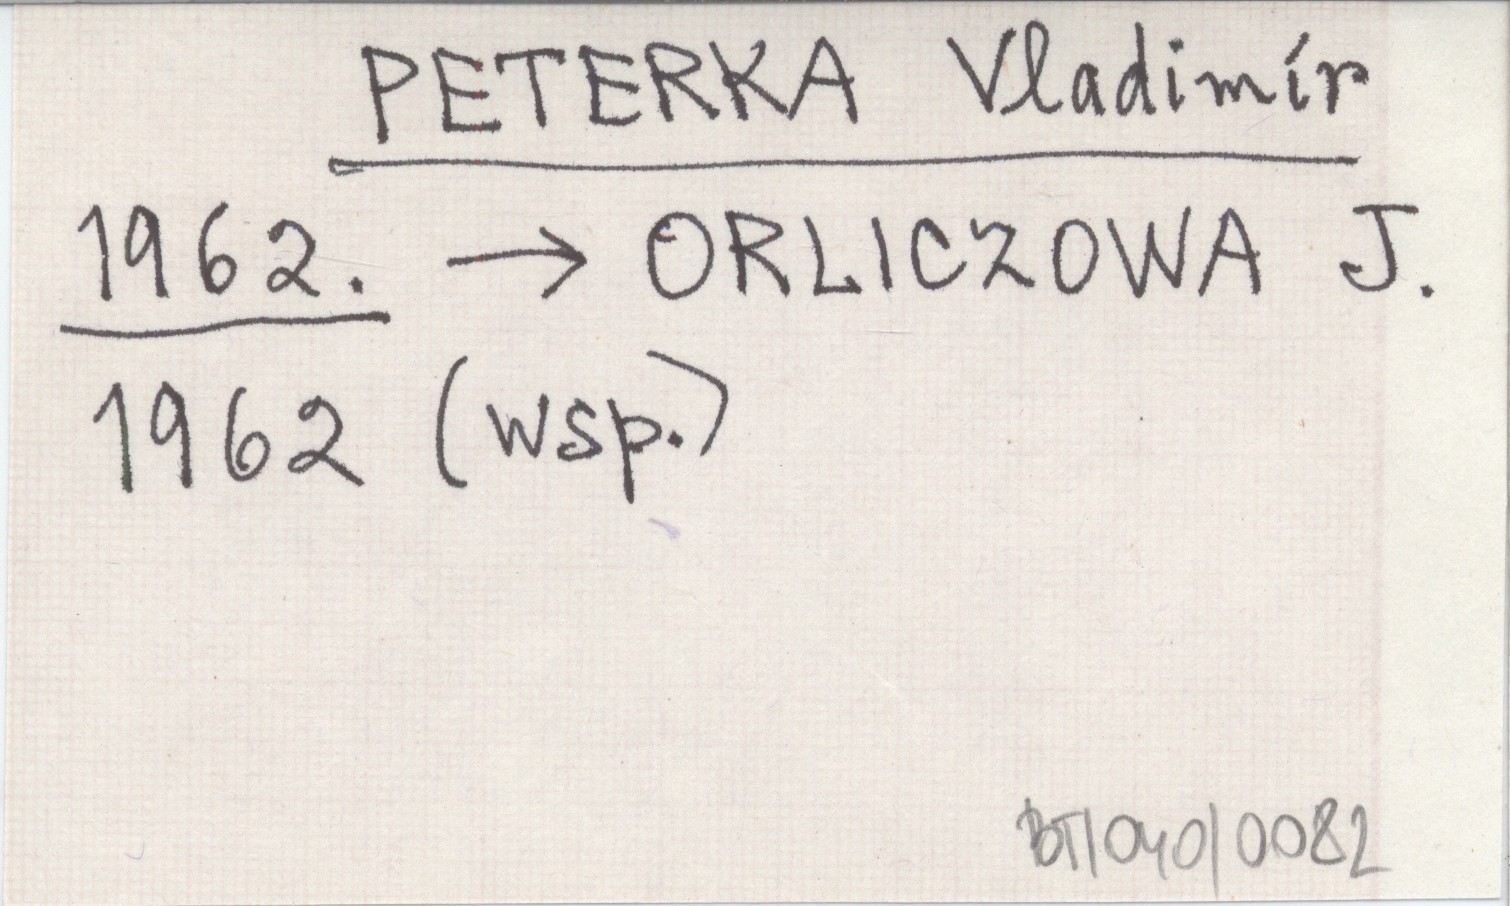 PETERKA Vladimír
1962. → ORLICZOWA J.
1962 (wsp.)
BT/040/0082